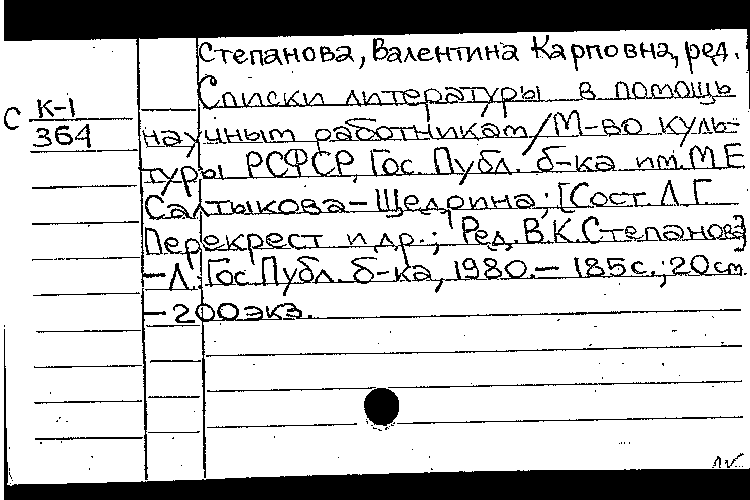 Степанова, Валентина Карповна, ред.
Списки литературы в помощь
С К-1
364
научным работникам/М-во куль-
туры РСФСР, Гос. Публ. б-ка им. М Е
Салтыкова-Щедрина; [Сост. Л. Г.
Перекрест и др.; Ред. В.К. Степанова]
-Л.: Гос. Публ. б-ка, 1980.- 185 с.; 20 см.
- 200 экз.